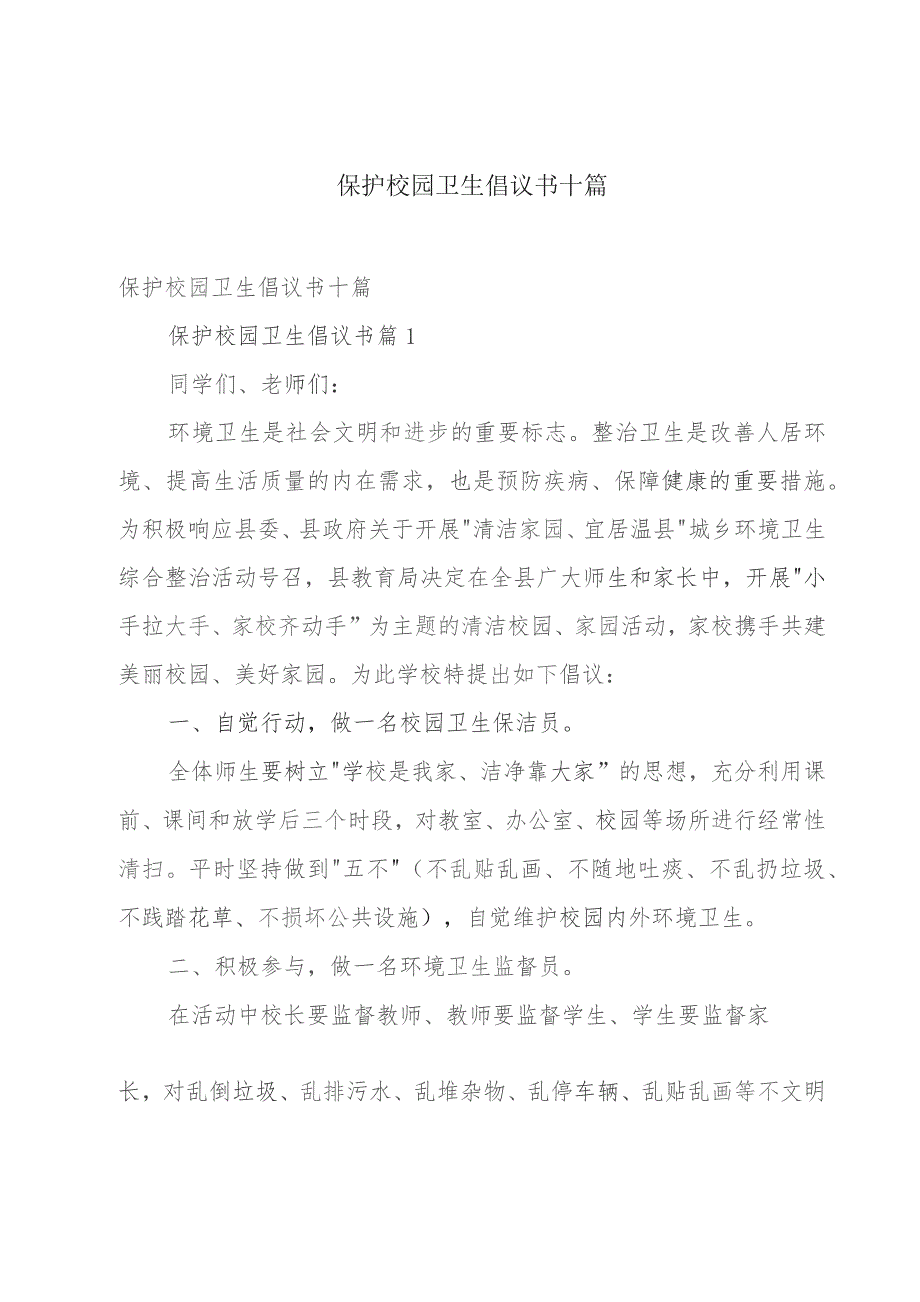 保护校园卫生倡议书十篇
保护校园卫生倡议书十篇
保护校园卫生倡议书篇1
同学们、老师们：
环境卫生是社会文明和进步的重要标志。整治卫生是改善人居环
境、提高生活质量的内在需求，也是预防疾病、保障健康的重要措施。
为积极响应县委、县政府关于开展"清洁家园、宜居温县"城乡环境卫生
综合整治活动号召，县教育局决定在全县广大师生和家长中，开展"小
手拉大手、家校齐动手”为主题的清洁校园、家园活动，家校携手共建
美丽校园、美好家园。为此学校特提出如下倡议：
一、自觉行动，做一名校园卫生保洁员。
全体师生要树立"学校是我家、洁净靠大家”的思想，充分利用课
前、课间和放学后三个时段，对教室、办公室、校园等场所进行经常性
清扫。平时坚持做到"五不"（不乱贴乱画、不随地吐痰、不乱扔垃圾、
不践踏花草、不损坏公共设施），自觉维护校园内外环境卫生。
二、积极参与，做一名环境卫生监督员。
在活动中校长要监督教师、教师要监督学生、学生要监督家
长，对乱倒垃圾、乱排污水、乱堆杂物、乱停车辆、乱贴乱画等不文明